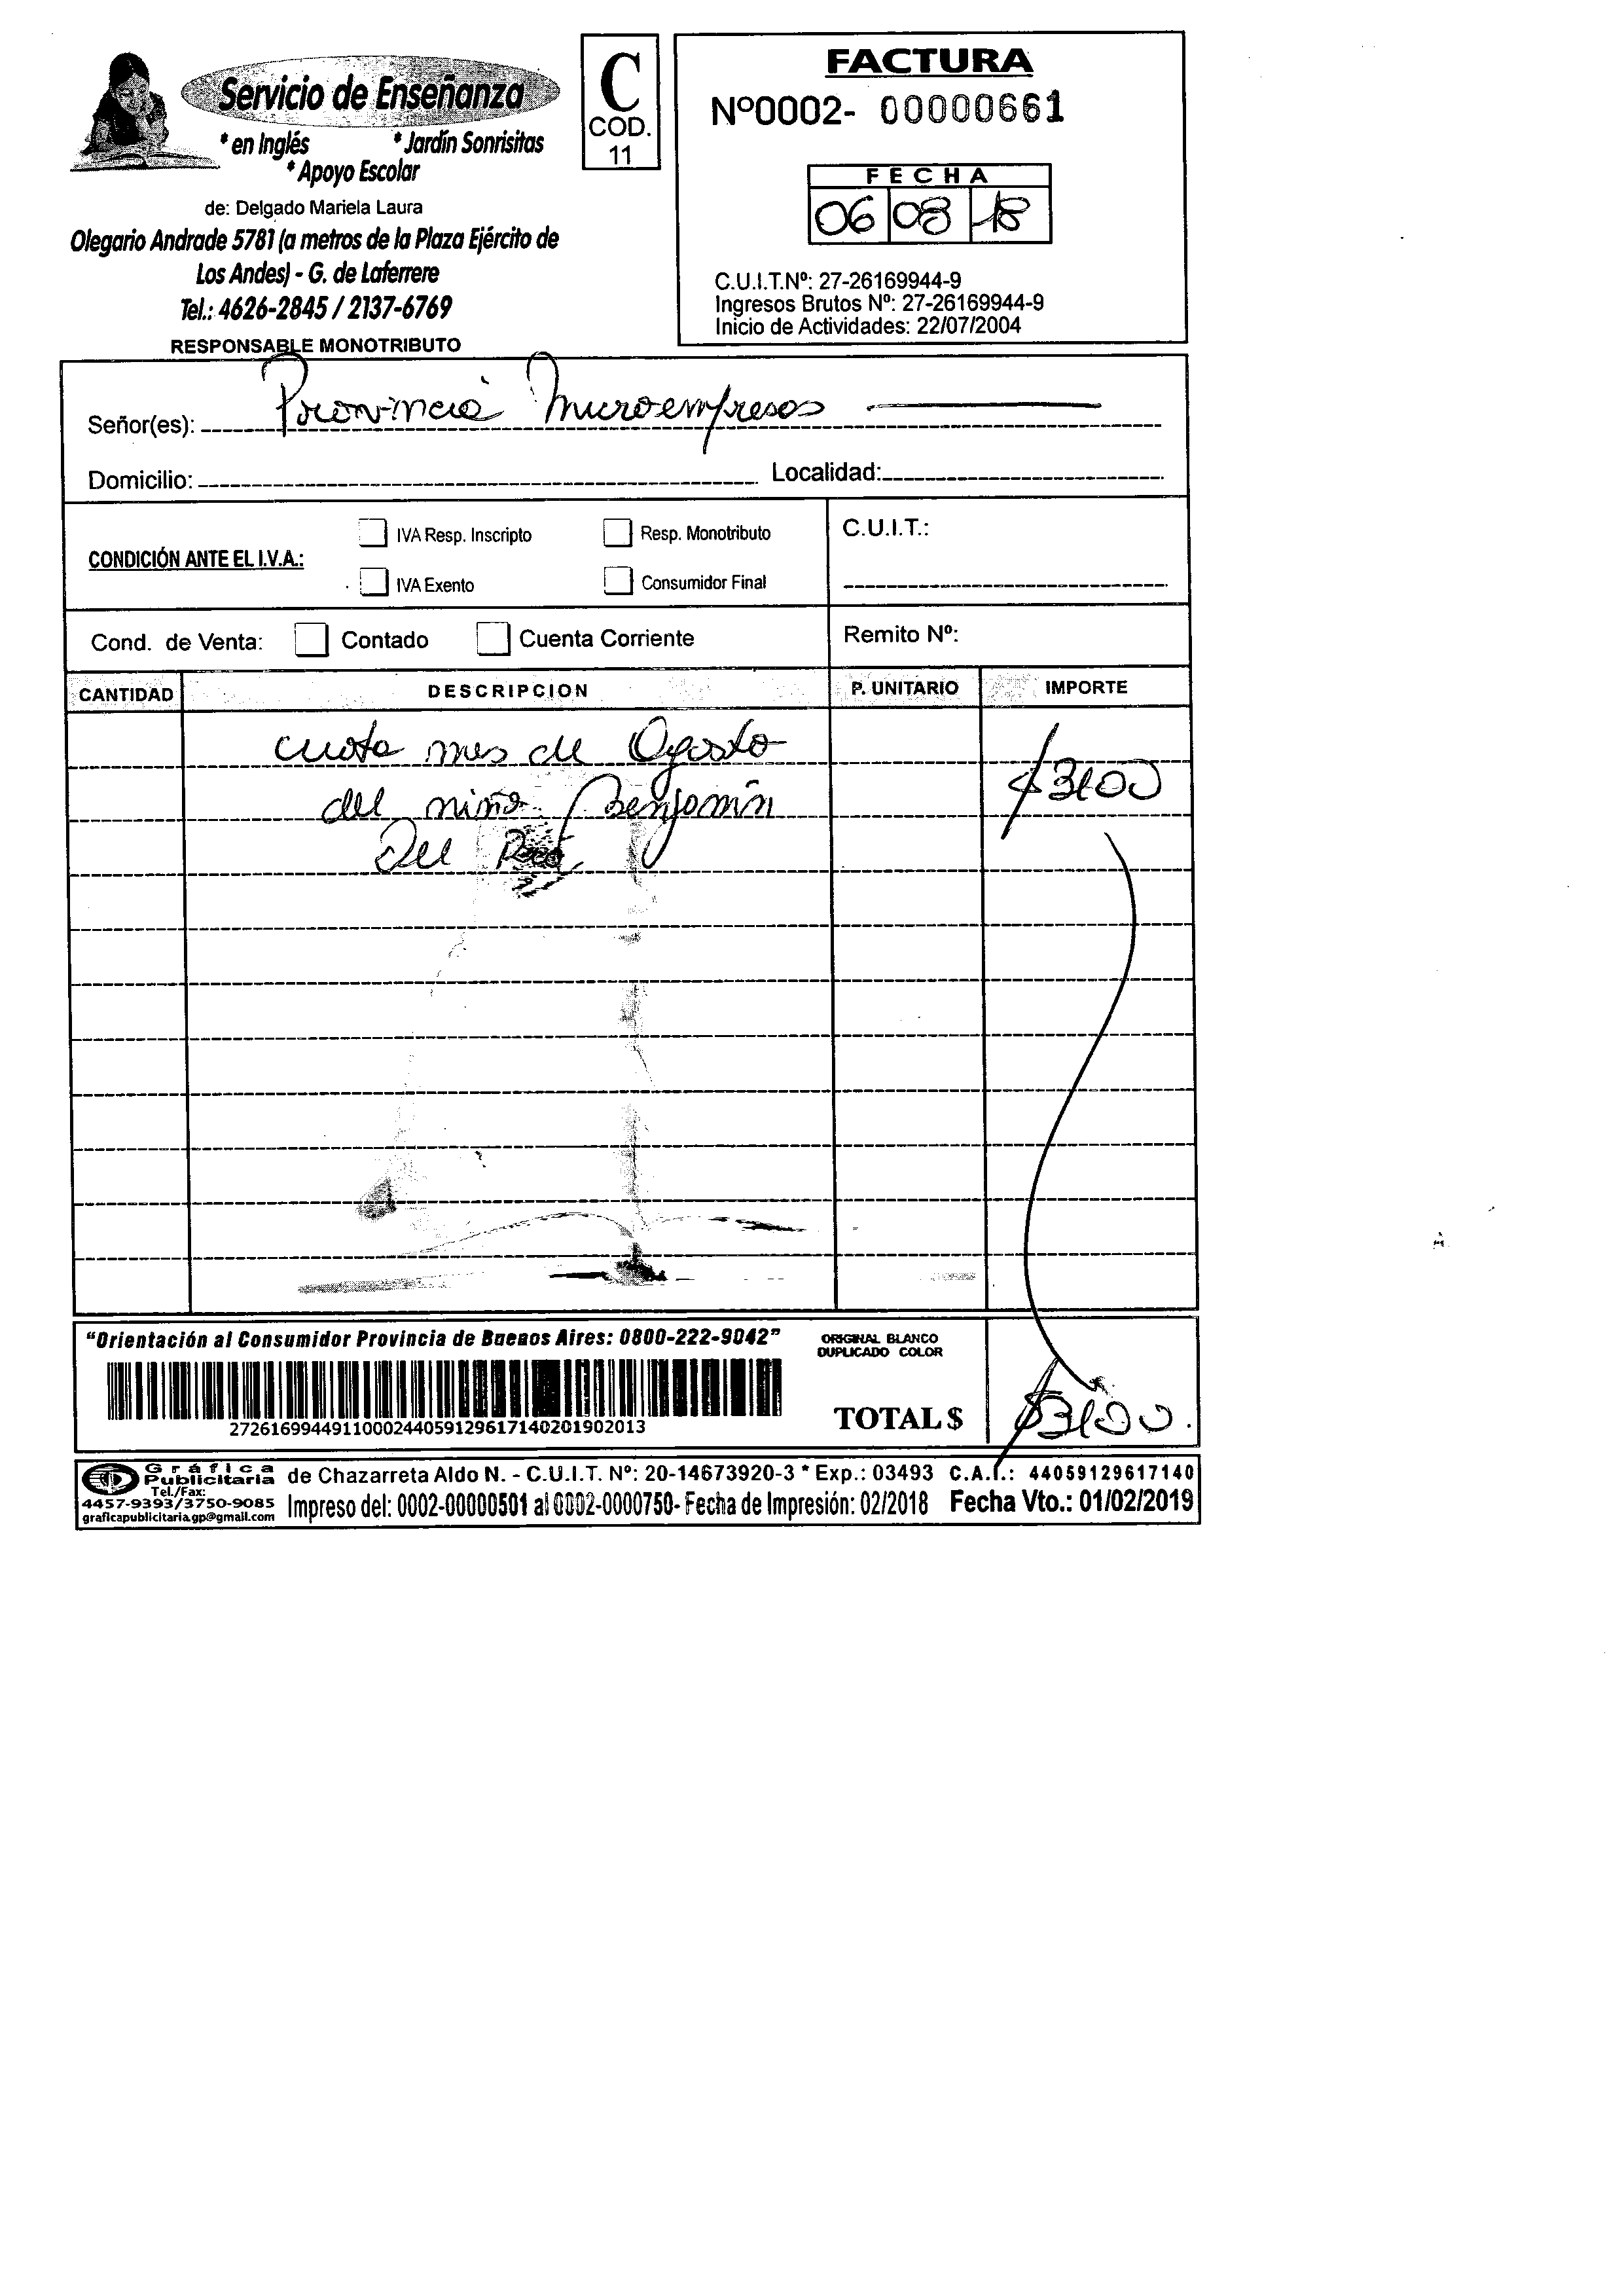 Servicio de Enseñanza
* en Inglés * Jardín Sonrisitas
* Apoyo Escolar
de: Delgado Mariela Laura
Olegario Andrade 5781 (a metros de la Plaza Ejército de
Los Andes) - G. de Laferrere
Tel.: 4626-2845 / 2137-6769
RESPONSABLE MONOTRIBUTO
C
COD.
11
FACTURA
Nº0002- 00000661
FECHA
06 08 18
C.U.I.T.Nº: 27-26169944-9
Ingresos Brutos Nº: 27-26169944-9
Inicio de Actividades: 22/07/2004
Señor(es): Provincia Microempresas
Domicilio: Localidad:
CONDICIÓN ANTE EL I.V.A.:
IVA Resp. Inscripto Resp. Monotributo
IVA Exento Consumidor Final
C.U.I.T.:
Cond. de Venta: Contado Cuenta Corriente Remito Nº:
CANTIDAD DESCRIPCION P. UNITARIO IMPORTE
cuota mes de Agosto
del niño Benjamín $3100
Del
"Orientación al Consumidor Provincia de Buenos Aires: 0800-222-9042"
ORIGINAL BLANCO
DUPLICADO COLOR
2726169944911000244059129617140201902013
TOTAL $ $3100.
Gráfica
Publicitaria
Tel./Fax:
4457-9393/3750-9085
graficapublicitaria.gp@gmail.com
de Chazarreta Aldo N. - C.U.I.T. Nº: 20-14673920-3 * Exp.: 03493 C.A.I.: 44059129617140
Impreso del: 0002-00000501 al 0002-0000750- Fecha de Impresión: 02/2018 Fecha Vto.: 01/02/2019